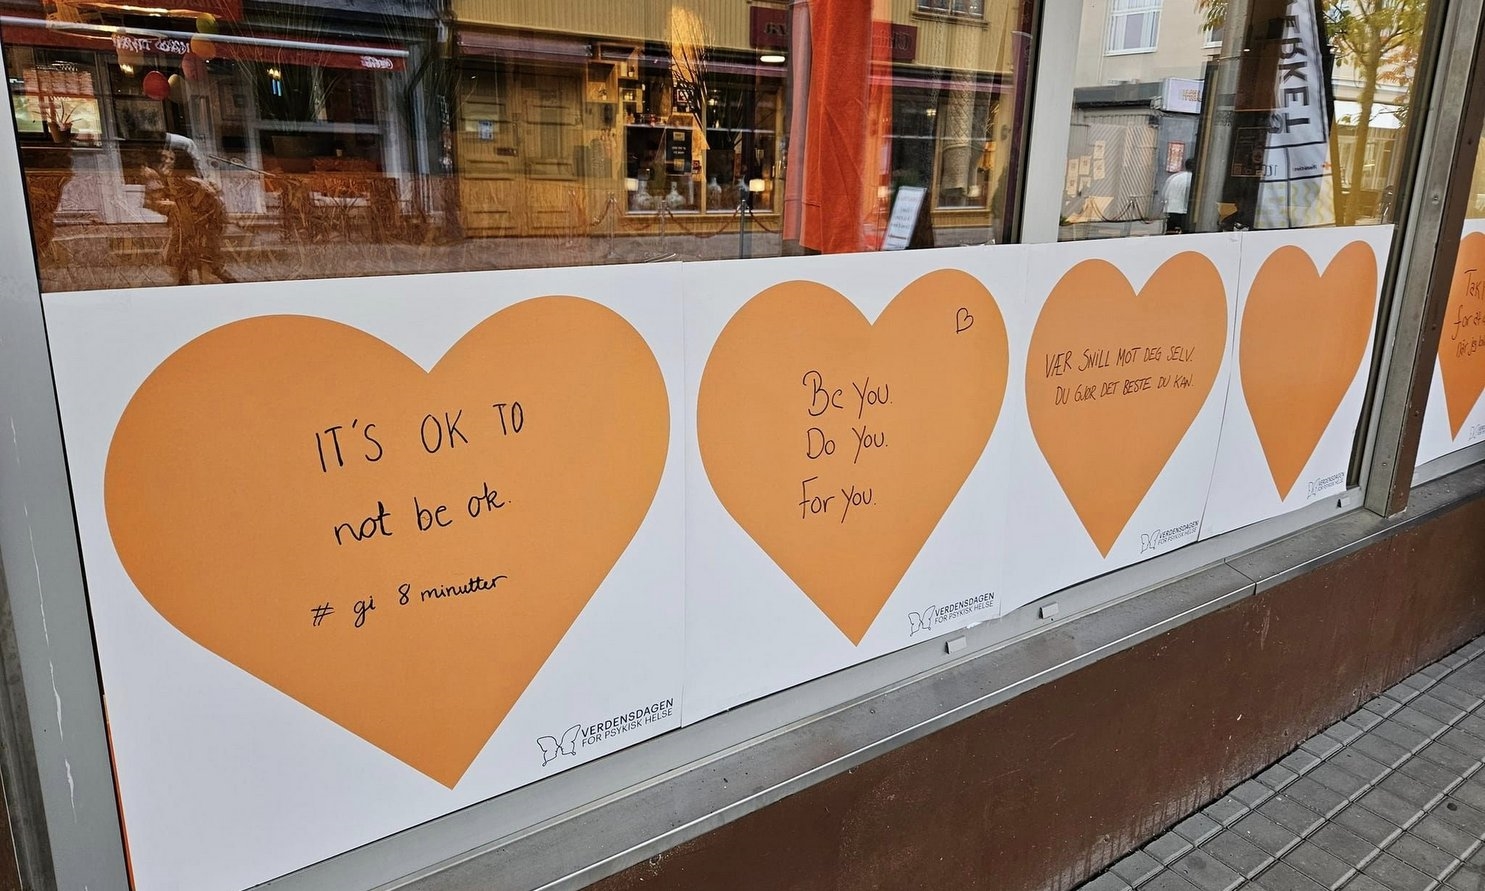 IT'S OK TO
not be ok.
# gi 8 minutter
VERDENSDAGEN
FOR PSYKISK HELSE
Be You.
Do You.
For You.
VERDENSDAGEN
FOR PSYKISK HELSE
VÆR SNILL MOT DEG SELV.
DU GJØR DET BESTE DU KAN.
VERDENSDAGEN
FOR PSYKISK HELSE
VERDENSDAGEN
FOR PSYKISK HELSE